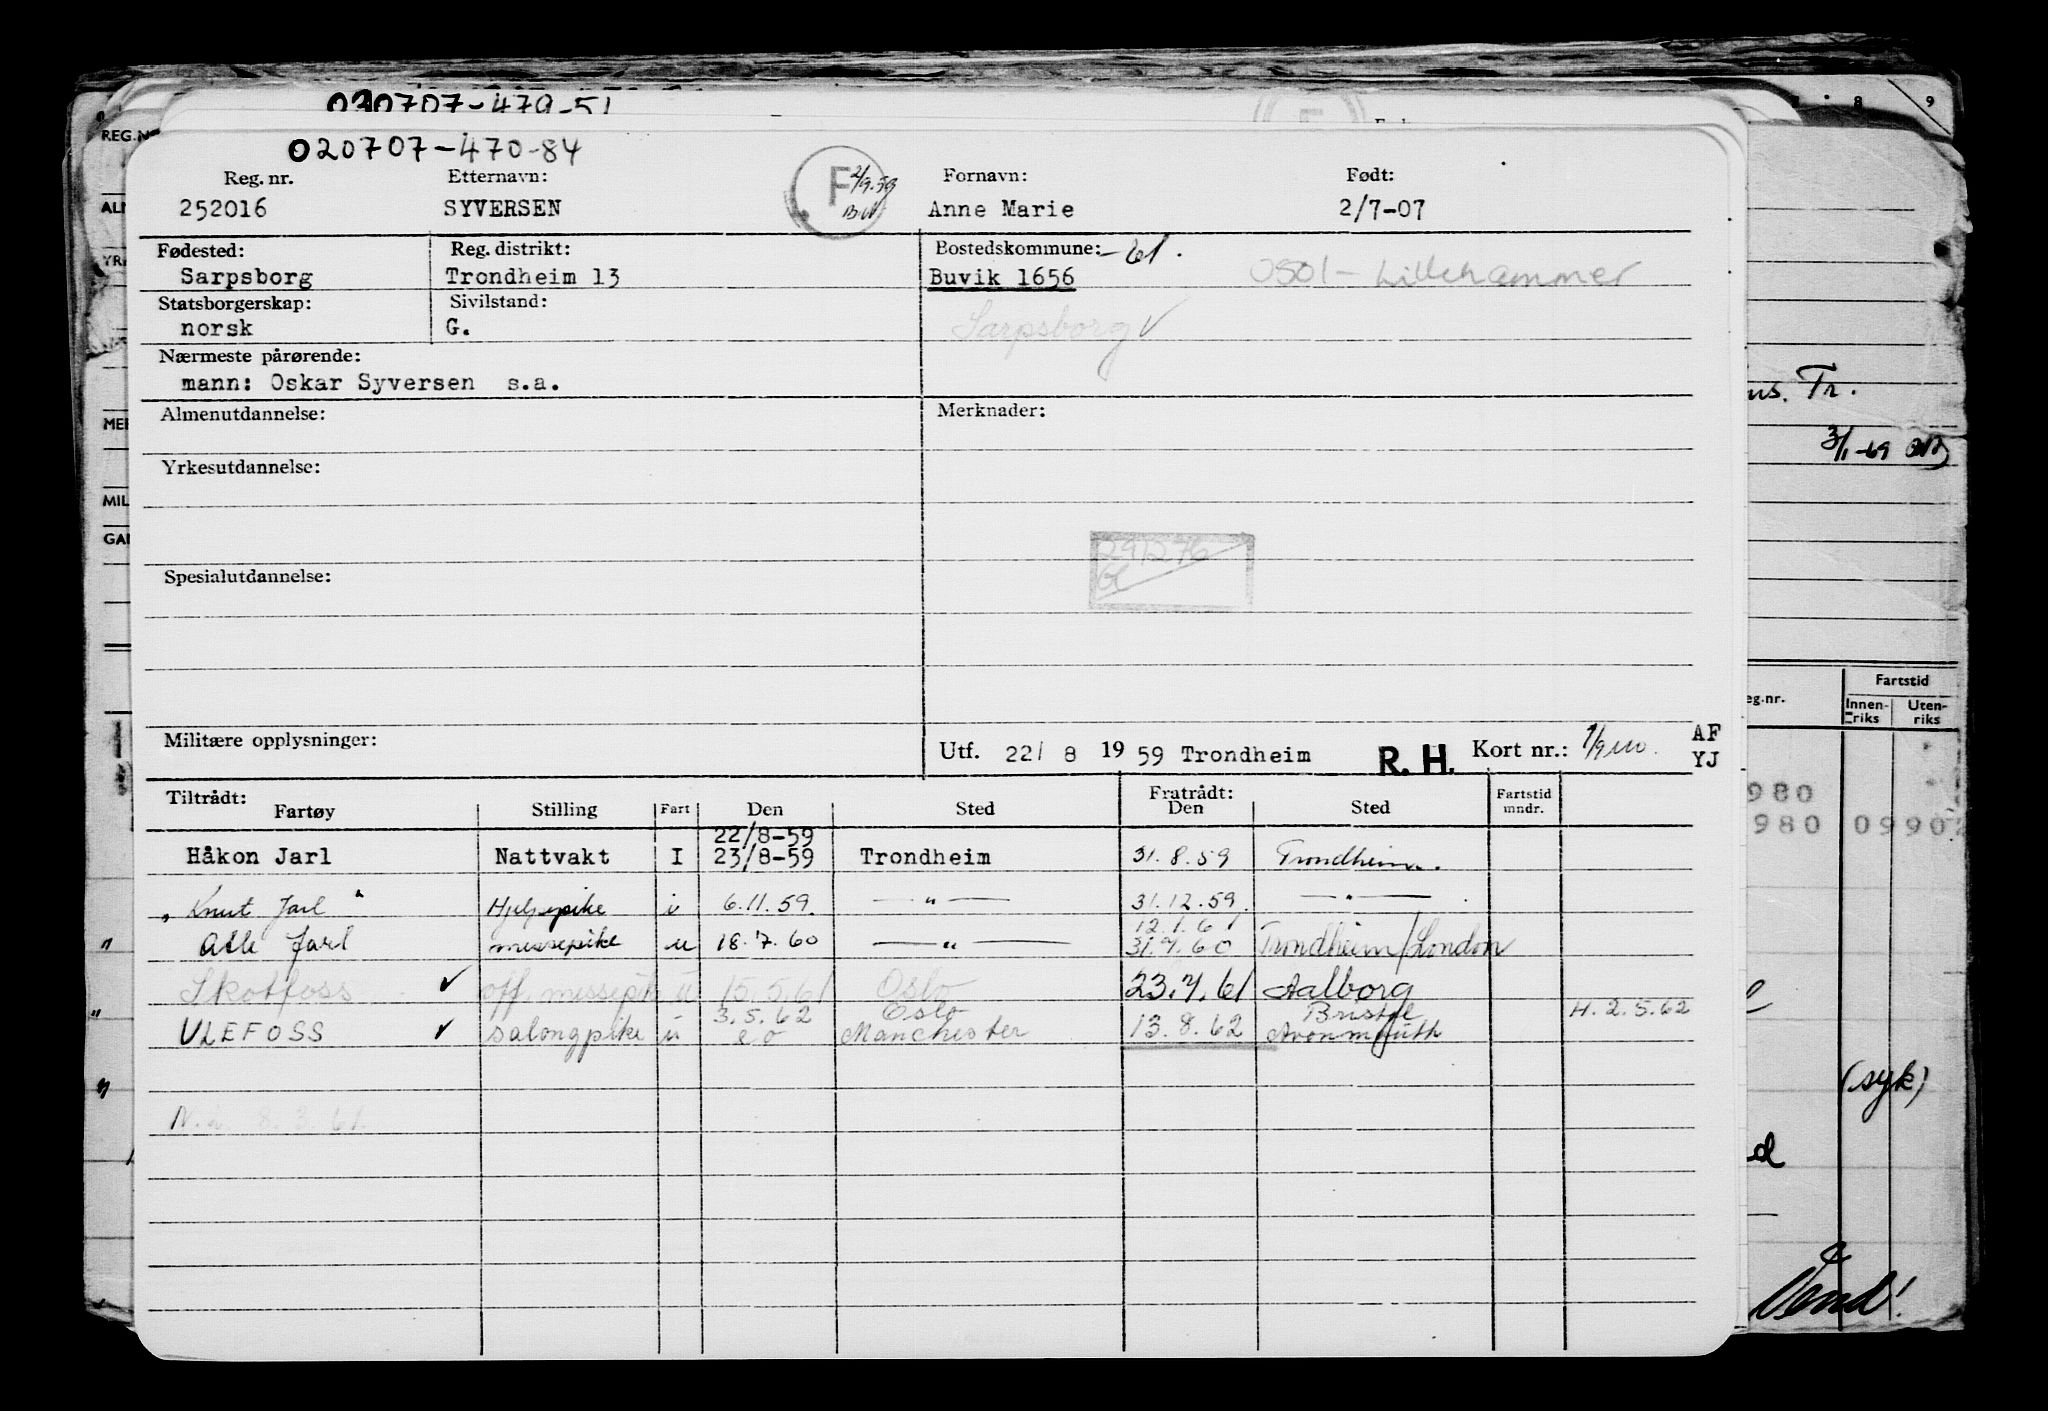 020707-479-51
020707-470-84
REG.N
Reg. nr. Etternavn: Fornavn: Født:
252016 SYVERSEN F 2/9.59 Anne Marie 2/7-07
Fødested: Reg. distrikt: Bostedskommune: -61.
Sarpsborg Trondheim 13 Buvik 1656 0501 - Lillehammer
Statsborgerskap: Sivilstand:
norsk G. Sarpsborg ✓
Nærmeste pårørende:
mann: Oskar Syversen s.a.
Almenutdannelse: Merknader:
Yrkesutdannelse:
Spesialutdannelse:
Militære opplysninger:
Utf. 22/ 8 1959 Trondheim R. H. Kort nr.: AF
YJ
Tiltrådt: Fratrådt:
Fartøy Stilling Fart Den Sted Den Sted Fartstid mndr.
22/8-59
Håkon Jarl Nattvakt I 23/8-59 Trondheim 31.8.59 Trondheim.
"Knut Jarl" Hjelpepike u 6.11.59. — " — 31.12.59. — " —
12.1.61
Atle Jarl messepike u 18.7.60 — " — 31.7.60 Trondheim/London
Skotfoss ✓ off. messepik u 15.5.61 Oslo 23.7.61 Aalborg
3.5.62 Oslo Bristol H. 2.5.62
ULEFOSS ✓ salongpike u e o Manchester 13.8.62 Avonmouth
8.3.61.
8 9
Tr.
3/1-69
eg.nr. Fartstid
Innen-riks Uten-riks
980
980 0990
(syk)
d
Vend!